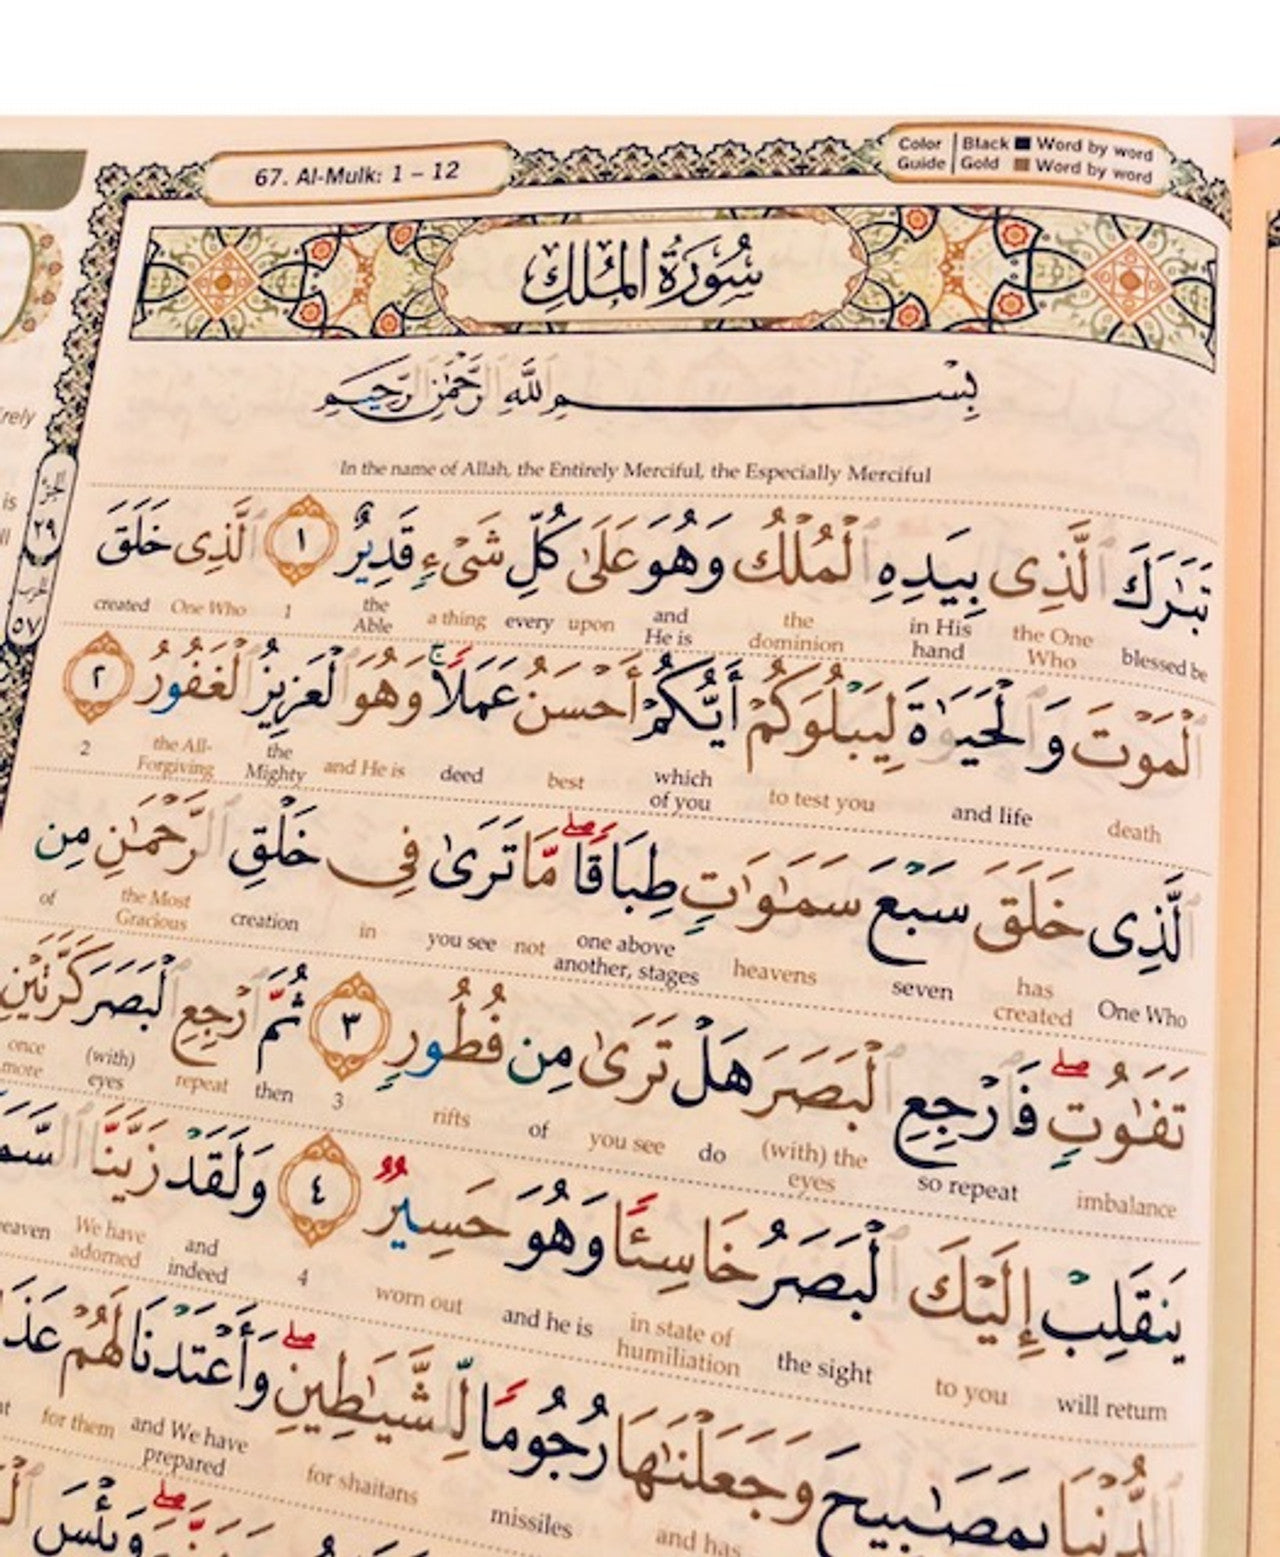 67. Al-Mulk: 1 – 12
Color Guide | Black ■ Word by word
Gold ■ Word by word
سُورَةُ المُلكِ
بِسْمِ اللَّهِ الرَّحْمَٰنِ الرَّحِيمِ
In the name of Allah, the Entirely Merciful, the Especially Merciful
تَبَٰرَكَ ٱلَّذِى بِيَدِهِ ٱلْمُلْكُ وَهُوَ عَلَىٰ كُلِّ شَىْءٍ قَدِيرٌ ١ ٱلَّذِى خَلَقَ
blessed be the One Who in His hand the dominion and He is upon every a thing the Able 1 One Who created
ٱلْمَوْتَ وَٱلْحَيَوٰةَ لِيَبْلُوَكُمْ أَيُّكُمْ أَحْسَنُ عَمَلًا ۚ وَهُوَ ٱلْعَزِيزُ ٱلْغَفُورُ ٢
death and life to test you which of you best deed and He is the Mighty the All-Forgiving 2
ٱلَّذِى خَلَقَ سَبْعَ سَمَٰوَٰتٍ طِبَاقًا ۖ مَّا تَرَىٰ فِى خَلْقِ ٱلرَّحْمَٰنِ مِن
One Who has created seven heavens one above another, stages not you see in creation the Most Gracious of
تَفَٰوُتٍ ۖ فَٱرْجِعِ ٱلْبَصَرَ هَلْ تَرَىٰ مِن فُطُورٍ ٣ ثُمَّ ٱرْجِعِ ٱلْبَصَرَ كَرَّتَيْنِ
imbalance so repeat (with) the eyes do you see of rifts 3 then repeat (with) eyes once more
يَنقَلِبْ إِلَيْكَ ٱلْبَصَرُ خَاسِئًا وَهُوَ حَسِيرٌ ٤ وَلَقَدْ زَيَّنَّا ٱلسَّمَ
will return to you the sight in state of humiliation and he is worn out 4 and indeed We have adorned heaven
ٱلدُّنْيَا بِمَصَٰبِيحَ وَجَعَلْنَٰهَا رُجُومًا لِّلشَّيَٰطِينِ ۖ وَأَعْتَدْنَا لَهُمْ عَذَا
and has missiles for shaitans and We have prepared for them
وَبِئْسَ
الجزء
٢٩
الحزب
٥٧